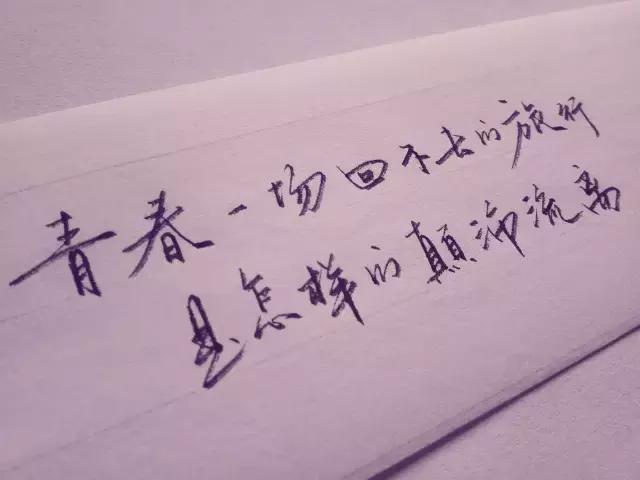 青春一场回不去的旅行
是怎样的颠沛流离